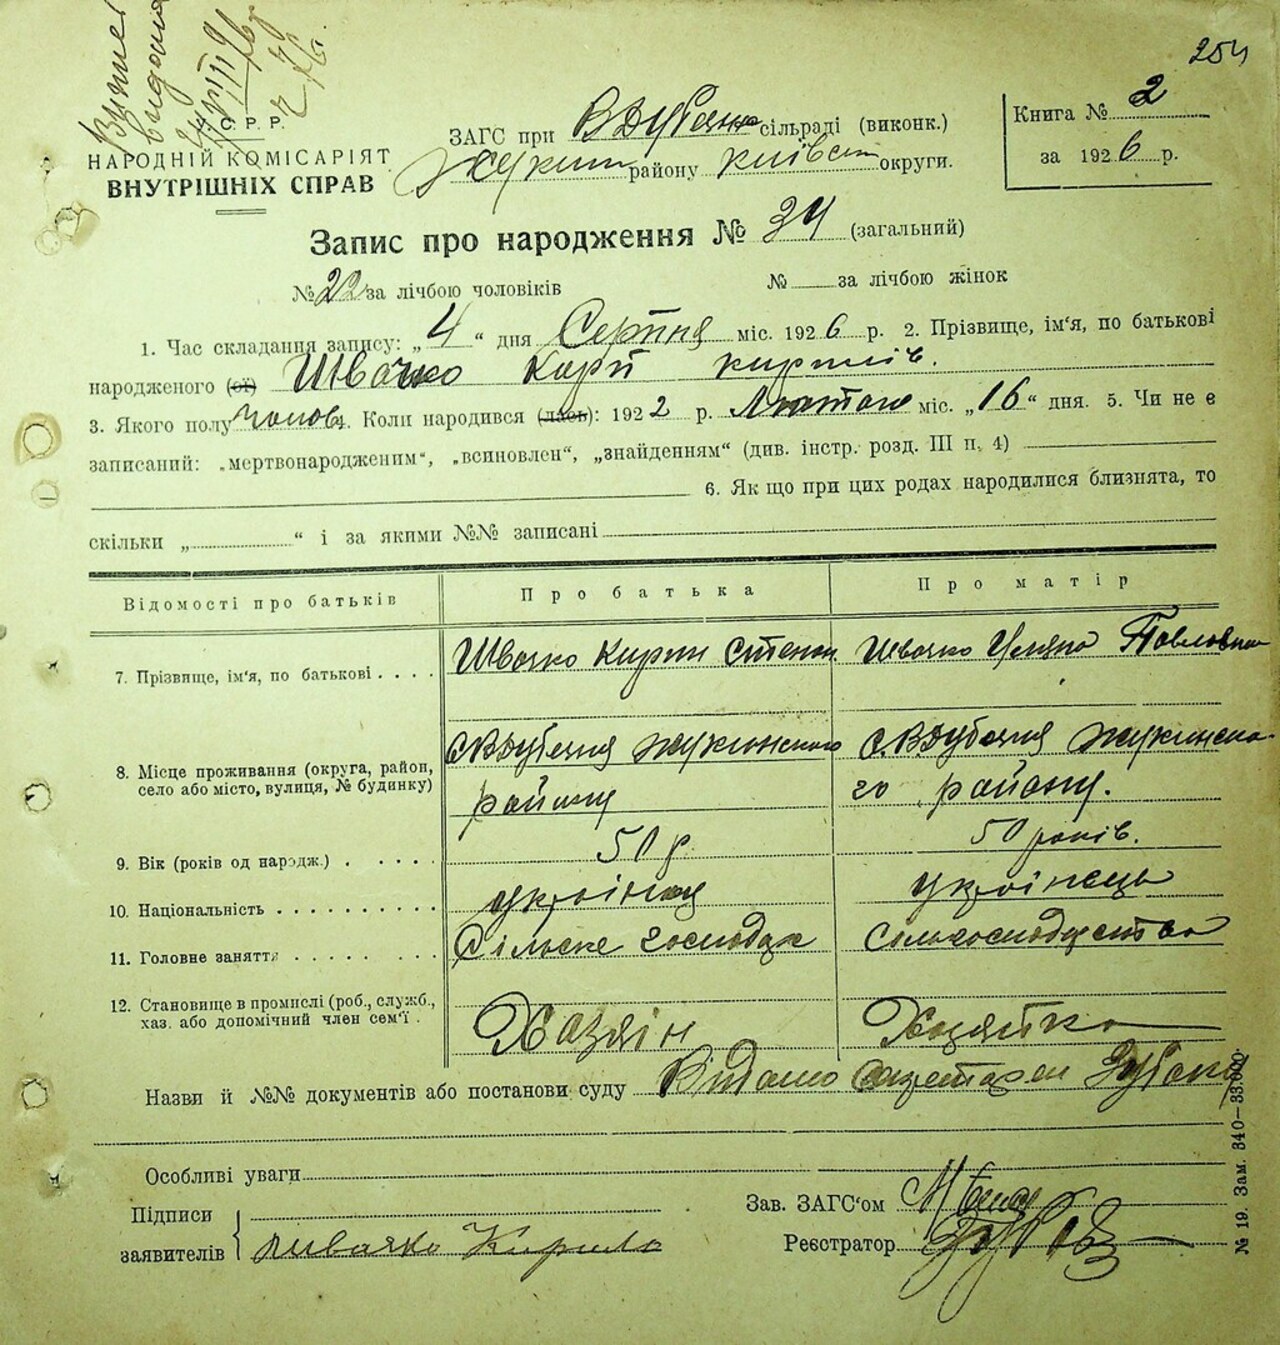 254
У.С.Р.Р.
НАРОДНІЙ КОМІСАРІЯТ
ВНУТРІШНІХ СПРАВ
ЗАГС при ВДубечн сільраді (виконк.)
Жукин району київськ округи.
Книга № 2
за 1926 р.
Запис про народження № 34 (загальний)
№ 22 за лічбою чоловіків № за лічбою жінок
1. Час складання запису: „4“ дня Серпня міс. 1926 р. 2. Прізвище, ім'я, по батькові
народженого (ої) Швачко Карп
3. Якого полу чолов. Коли народився (лась): 1922 р. Лютого міс. „16“ дня. 5. Чи не є
записаний: „мертвонародженим“, „всиновлен“, „знайденням“ (див. інстр. розд. III п. 4)
6. Як що при цих родах народилися близнята, то
скільки „ “ і за якими №№ записані
Відомості про батьків Про батька Про матір
7. Прізвище, ім'я, по батькові . . . . Швачко Кирил Степан Швачко Уляна Павловна
8. Місце проживання (округа, район, село або місто, вулиця, № будинку) с. ВДубечня жукинского С. ВДубечня жукинско-
району го району.
9. Вік (років од народж.) . . . . . 50 р. 50 років.
10. Національність . . . . . . . . . . українец українець
11. Головне заняття . . . . . . . . Сільске господар Сільгосподарство
12. Становище в промислі (роб., служб., хаз. або допомічний член сем'ї . Хазяін Хазяйка
Назви й №№ документів або постанови суду Відомо
Особливі уваги
Підписи
заявителів Швачко Кирило
Зав. ЗАГС'ом
Реєстратор
№ 19. Зам. 340—33.000.